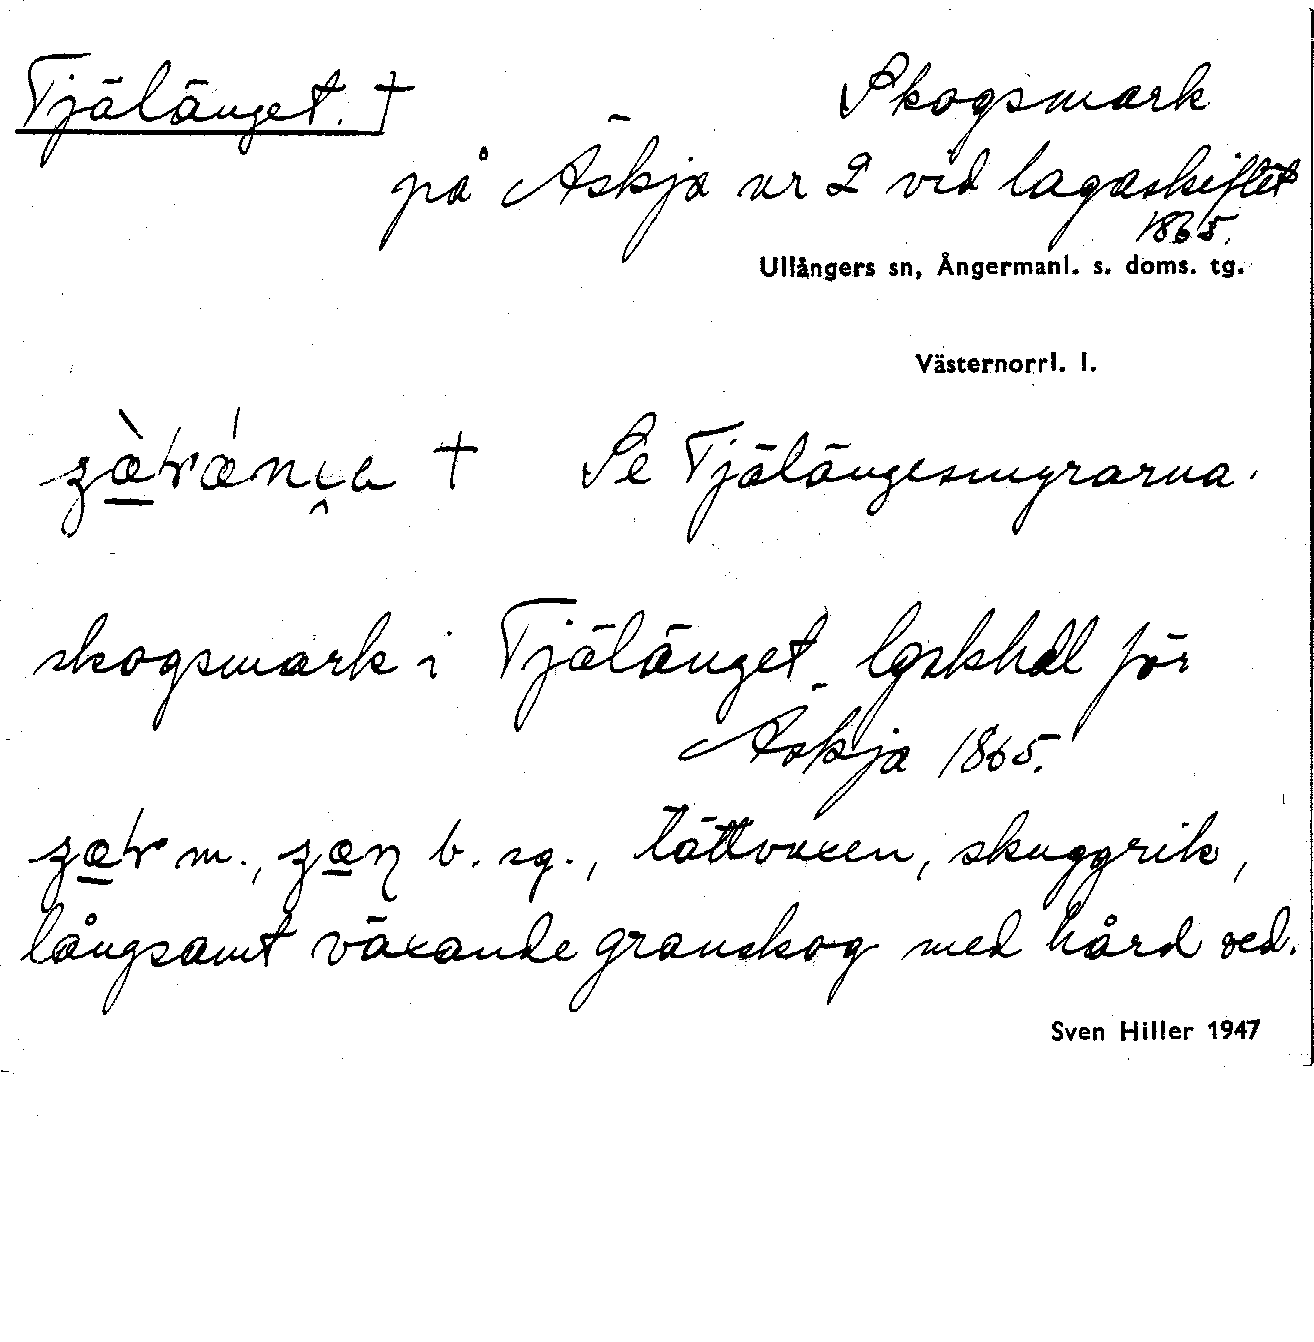 Tjälänget. † Skogsmark
på Äskja nr 2 vid lagaskiftet
1865.
Ullångers sn, Ångermanl. s. doms. tg.
Västernorrl. l.
† Se Tjälängesmyrarna.
skogsmark i Tjälänget lgskhdl för
Äskja 1865.
m., b. sg., tättvuxen, skuggrik,
långsamt växande granskog med hård ved.
Sven Hiller 1947